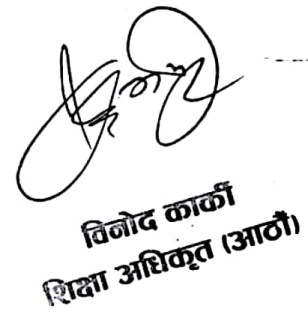 विनोद कार्की
शिक्षा अधिकृत (आठौं)